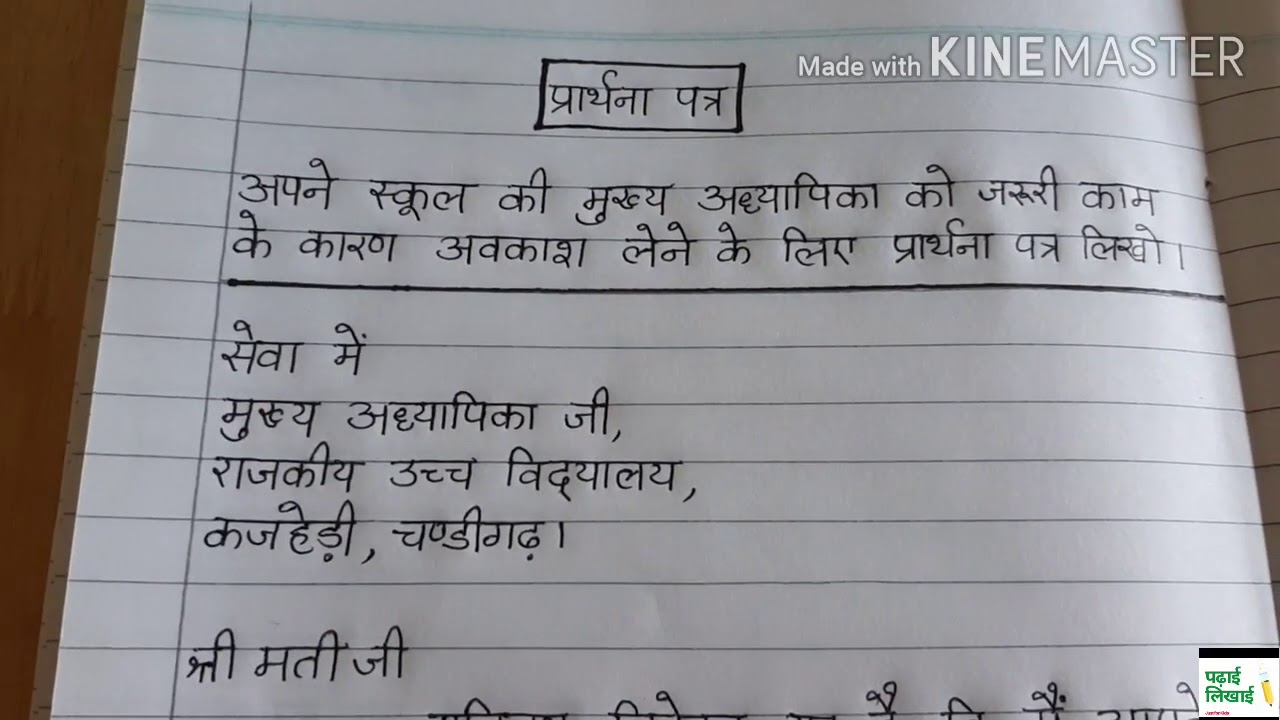 Made with KINEMASTER
प्रार्थना पत्र
अपने स्कूल की मुख्य अध्यापिका को जरूरी काम
के कारण अवकाश लेने के लिए प्रार्थना पत्र लिखो।
सेवा में
मुख्य अध्यापिका जी,
राजकीय उच्च विद्‌यालय,
कजहेड़ी, चण्डीगढ़।
श्री मती जी
पढ़ाई
लिखाई